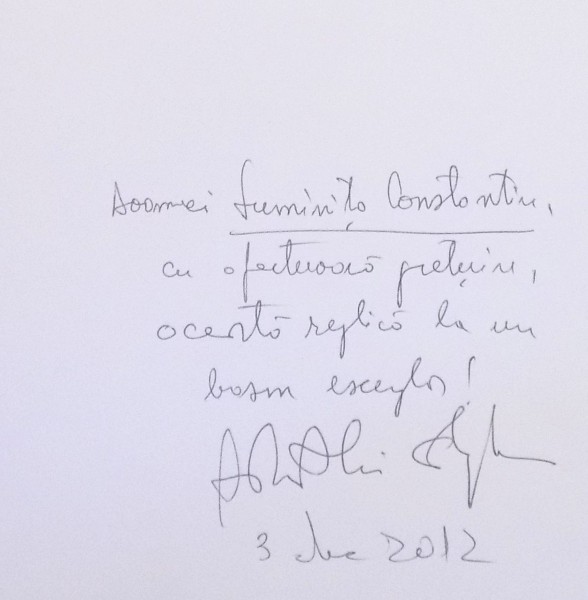 Doamnei Luminița Constantin,
cu afectuoasă prețuire,
această replică la un
basm exemplar!
3 dec 2012